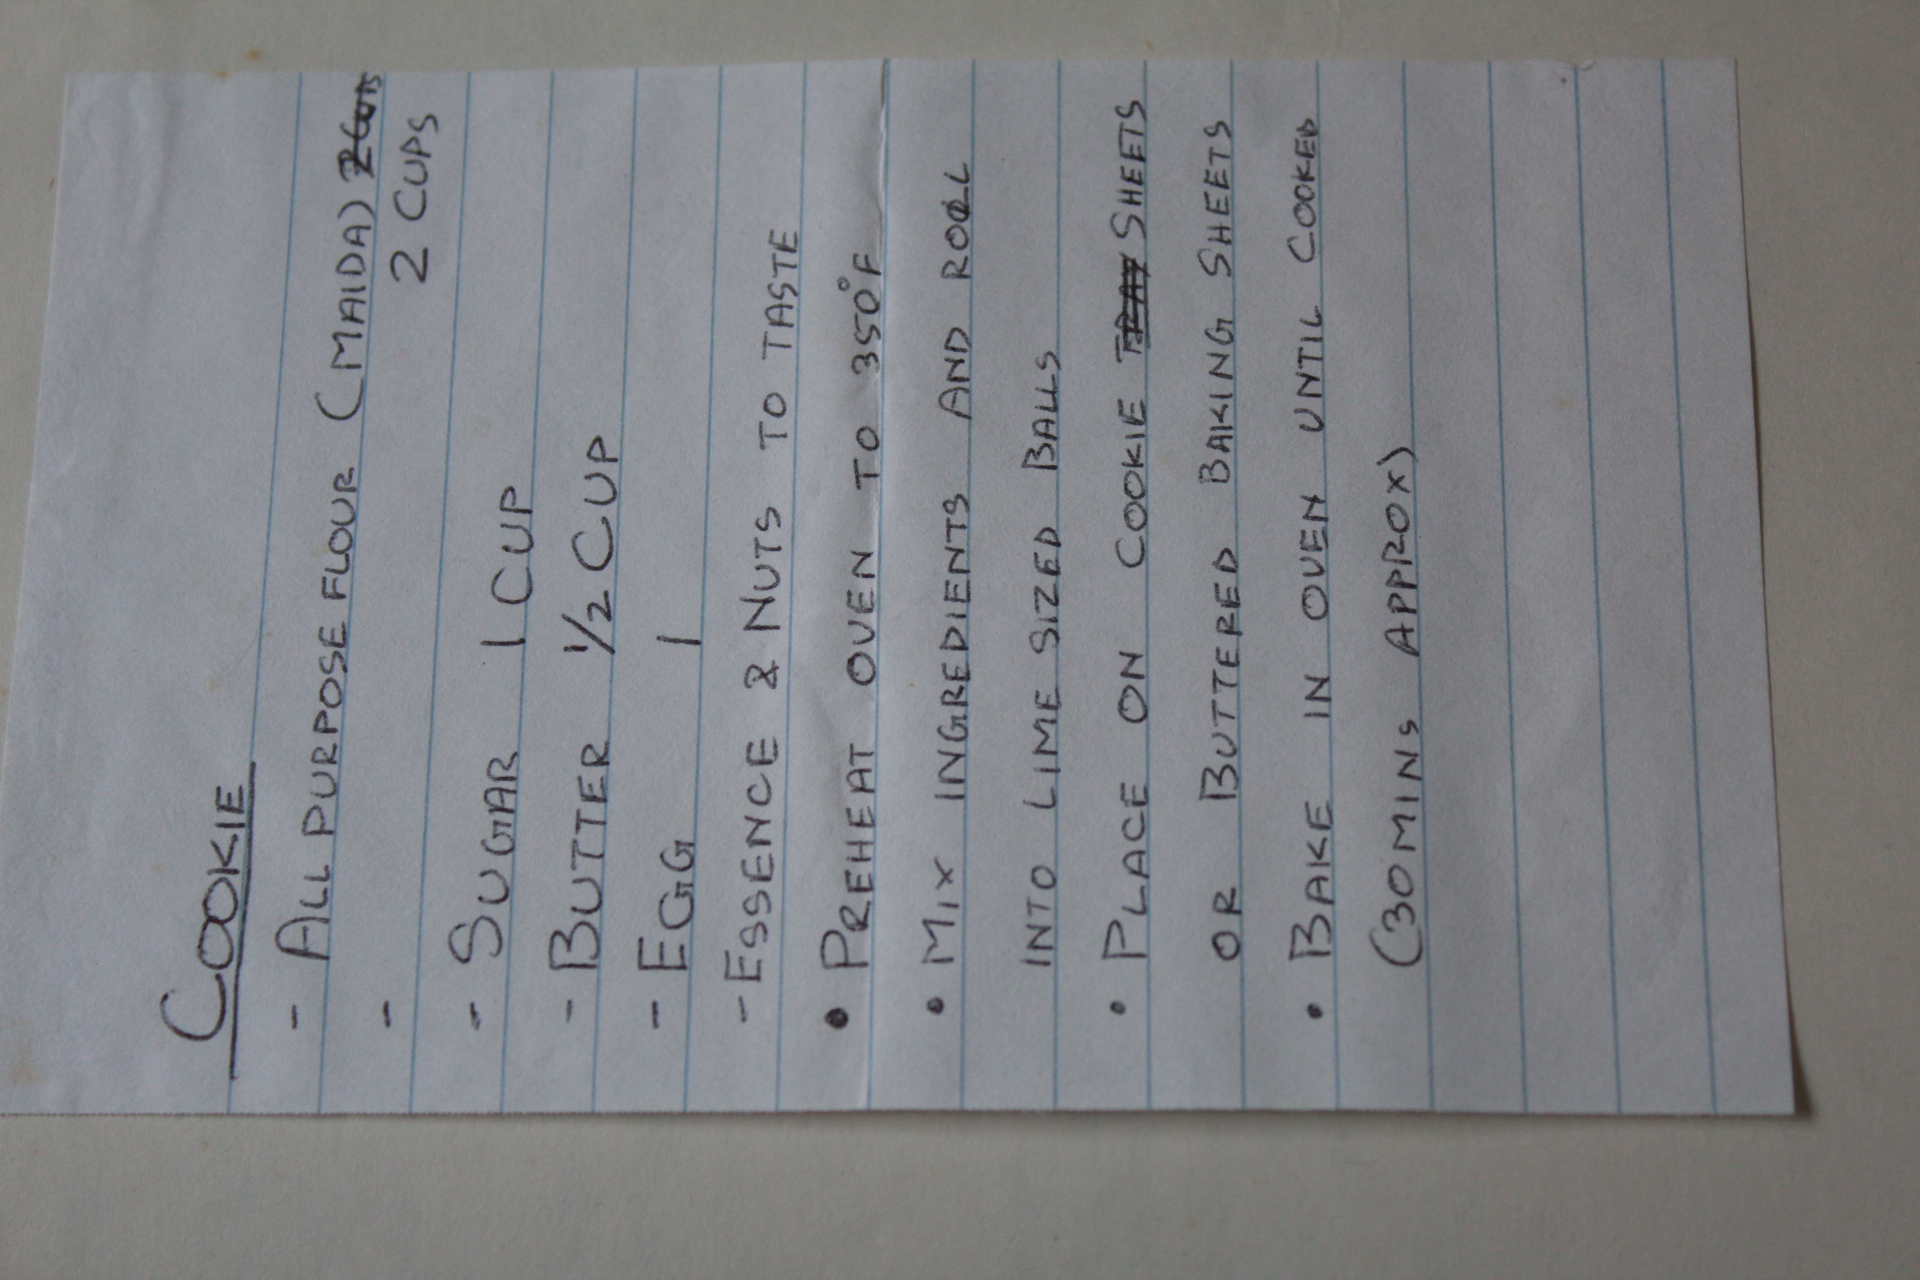 COOKIE
- ALL PURPOSE FLOUR (MAIDA) 2 CUPS
- 2 CUPS
- SUGAR 1 CUP
- BUTTER 1/2 CUP
- EGG 1
- ESSENCE & NUTS TO TASTE
• PREHEAT OVEN TO 350°F
• MIX INGREDIENTS AND ROLL
INTO LIME SIZED BALLS
• PLACE ON COOKIE TRAY SHEETS
OR BUTTERED BAKING SHEETS
• BAKE IN OVEN UNTIL COOKED
(30 MINS APPROX)